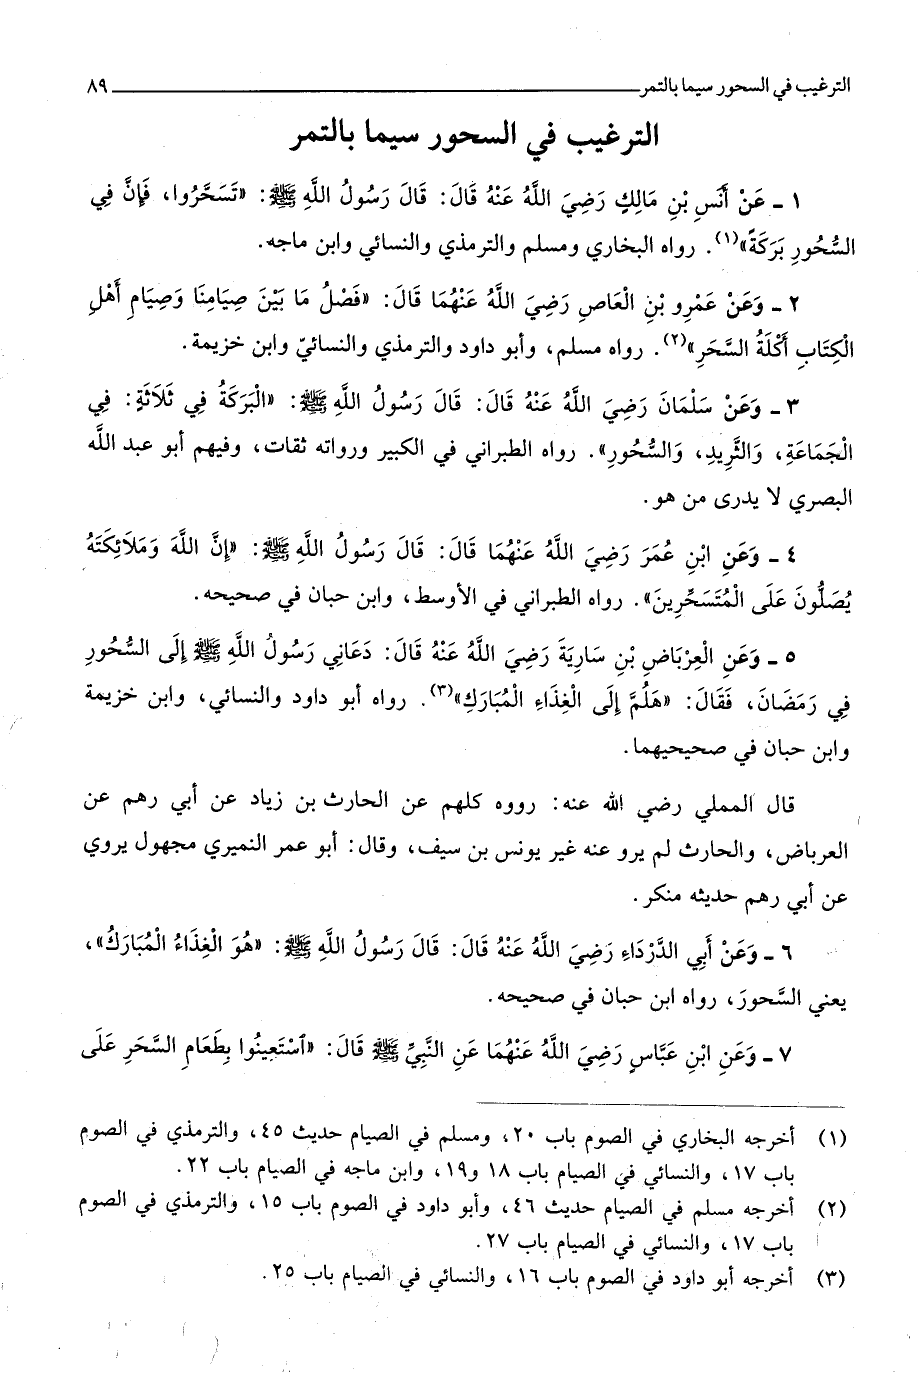 الترغيب في السحور سيما بالتمر ٨٩
الترغيب في السحور سيما بالتمر
١ ـ عَنْ أَنَسِ بْنِ مَالِكٍ رَضِيَ اللَّهُ عَنْهُ قَالَ: قَالَ رَسُولُ اللَّهِ ﷺ: «تَسَحَّرُوا، فَإِنَّ فِي
السُّحُورِ بَرَكَةً»(١). رواه البخاري ومسلم والترمذي والنسائي وابن ماجه.
٢ ـ وَعَنْ عَمْرِو بْنِ الْعَاصِ رَضِيَ اللَّهُ عَنْهُمَا قَالَ: «فَصْلُ مَا بَيْنَ صِيَامِنَا وَصِيَامِ أَهْلِ
الْكِتَابِ أَكْلَةُ السَّحَرِ»(٢). رواه مسلم، وأبو داود والترمذي والنسائيّ وابن خزيمة.
٣ ـ وَعَنْ سَلْمَانَ رَضِيَ اللَّهُ عَنْهُ قَالَ: قَالَ رَسُولُ اللَّهِ ﷺ: «الْبَرَكَةُ فِي ثَلَاثَةٍ: فِي
الْجَمَاعَةِ، وَالثَّرِيدِ، وَالسُّحُورِ». رواه الطبراني في الكبير ورواته ثقات، وفيهم أبو عبد اللَّه
البصري لا يدرى من هو.
٤ ـ وَعَنِ ابْنِ عُمَرَ رَضِيَ اللَّهُ عَنْهُمَا قَالَ: قَالَ رَسُولُ اللَّهِ ﷺ: «إِنَّ اللَّهَ وَمَلَائِكَتَهُ
يُصَلُّونَ عَلَى الْمُتَسَحِّرِينَ». رواه الطبراني في الأوسط، وابن حبان في صحيحه.
٥ ـ وَعَنِ الْعِرْبَاضِ بْنِ سَارِيَةَ رَضِيَ اللَّهُ عَنْهُ قَالَ: دَعَانِي رَسُولُ اللَّهِ ﷺ إِلَى السُّحُورِ
فِي رَمَضَانَ، فَقَالَ: «هَلُمَّ إِلَى الْغِذَاءِ الْمُبَارَكِ»(٣). رواه أبو داود والنسائي، وابن خزيمة
وابن حبان في صحيحيهما.
قال المملي رضي الله عنه: رووه كلهم عن الحارث بن زياد عن أبي رهم عن
العرباض، والحارث لم يرو عنه غير يونس بن سيف، وقال: أبو عمر النميري مجهول يروي
عن أبي رهم حديثه منكر.
٦ ـ وَعَنْ أَبِي الدَّرْدَاءِ رَضِيَ اللَّهُ عَنْهُ قَالَ: قَالَ رَسُولُ اللَّهِ ﷺ: «هُوَ الْغِذَاءُ الْمُبَارَكُ»،
يعني السَّحورَ، رواه ابن حبان في صحيحه.
٧ ـ وَعَنِ ابْنِ عَبَّاسٍ رَضِيَ اللَّهُ عَنْهُمَا عَنِ النَّبِيِّ ﷺ قَالَ: «اسْتَعِينُوا بِطَعَامِ السَّحَرِ عَلَى
(١) أخرجه البخاري في الصوم باب ٢٠، ومسلم في الصيام حديث ٤٥، والترمذي في الصوم
باب ١٧، والنسائي في الصيام باب ١٨ و١٩، وابن ماجه في الصيام باب ٢٢.
(٢) أخرجه مسلم في الصيام حديث ٤٦، وأبو داود في الصوم باب ١٥، والترمذي في الصوم
باب ١٧، والنسائي في الصيام باب ٢٧.
(٣) أخرجه أبو داود في الصوم باب ١٦، والنسائي في الصيام باب ٢٥.